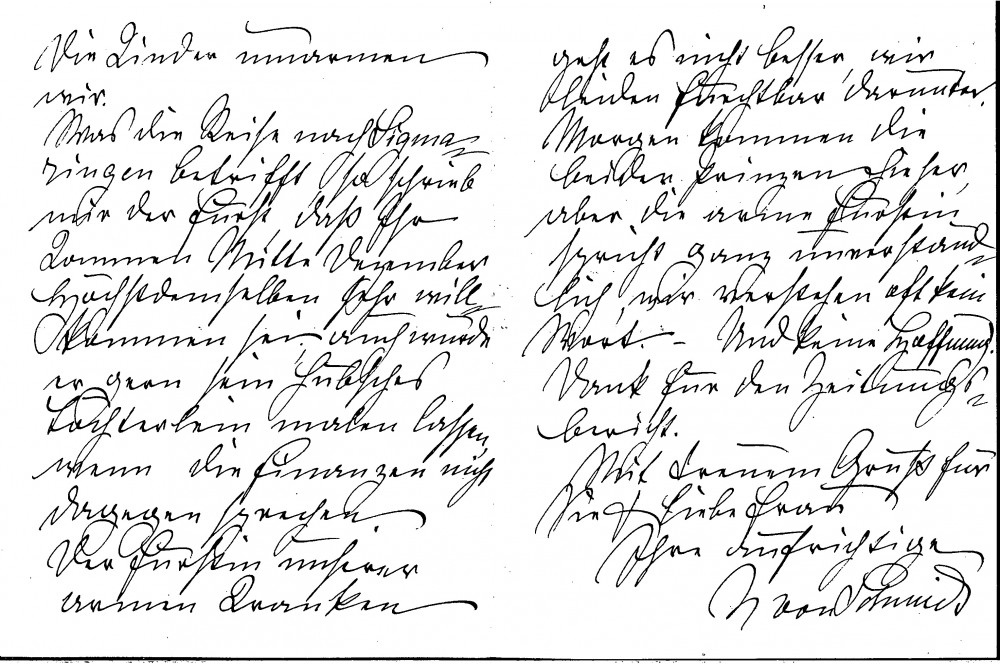 Die Kinder umarmen
wir.
Was die Reise nach Sigma-
ringen betrifft so schrieb
mir der Fürst, daß Ihr
Kommen Mitte Dezember
Höchstdemselben sehr will-
kommen sei, auch würde
er gern sein hübsches
Töchterlein malen lassen,
wenn die Finanzen nicht
dagegen sprechen.
Der Fürstin unserer
armen Kranken
geht es nicht besser, wir
leiden furchtbar darunter.
Morgen kommen die
beiden Prinzen hieher,
aber die arme Fürstin
spricht ganz unverständ-
lich, wir verstehen oft kein
Wort. – Und keine Hoffnung.
Dank für den Zeitungs-
bericht.
Mit treuem Gruß für
Sie liebe Frau
Ihre aufrichtige
von Schmidt